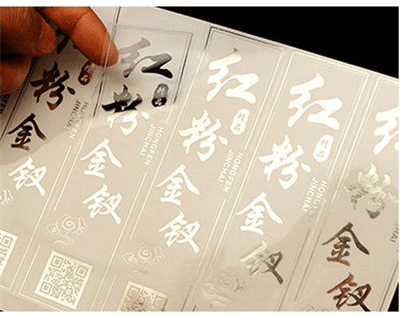 粉金钗
红粉金钗
HONGFEN
JINCHAI
红粉金钗
HONGFEN
JINCHAI
红粉金钗
HONGFEN
JINCHAI
红粉金钗